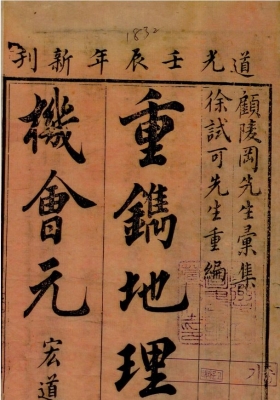 1832
道光壬辰年新刊
顧陵岡先生彙集
徐試可先生重編
重鐫地理
機會元
宏道